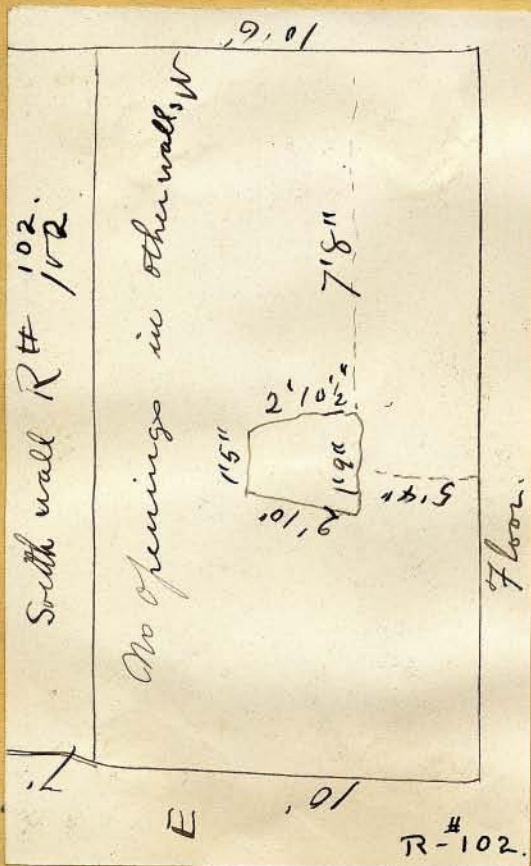 South wall R # 102.
102
No openings in other walls,
W
10'6"
7'8"
2'10½"
1'5"
1'9"
2'10"
5'4"
Floor.
7'
E
10'
R-#102.